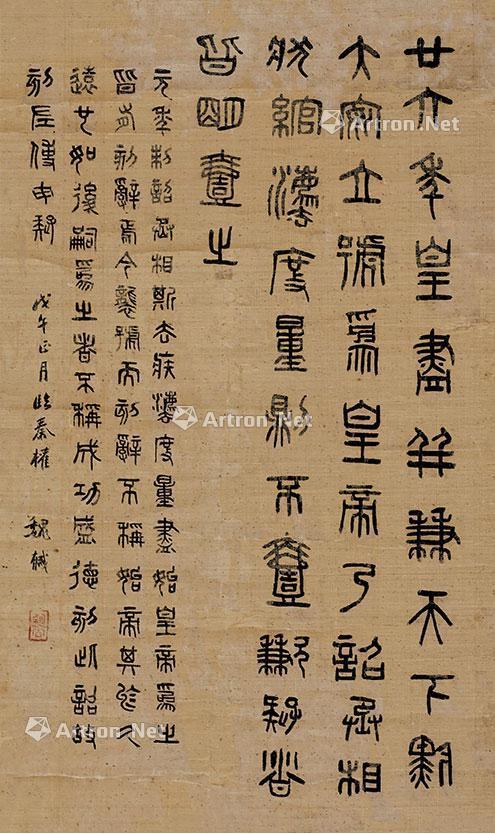 廿六年皇盡并兼天下黔
大安立號為皇帝乃詔丞相
狀綰灋度量則不壹歉疑者
皆明壹之
元年制詔丞相斯去疾灋度量盡始皇帝為之
皆有刻辭焉今襲號而刻辭不稱始帝其於久
遠也如後嗣為之者不稱成功盛德刻此詔故
刻左使毋疑
戊午正月臨秦權 魏戫
Artron.Net
Artron.Net
Artron.Net
Artron.Net
Artron.Net
Artron.Net